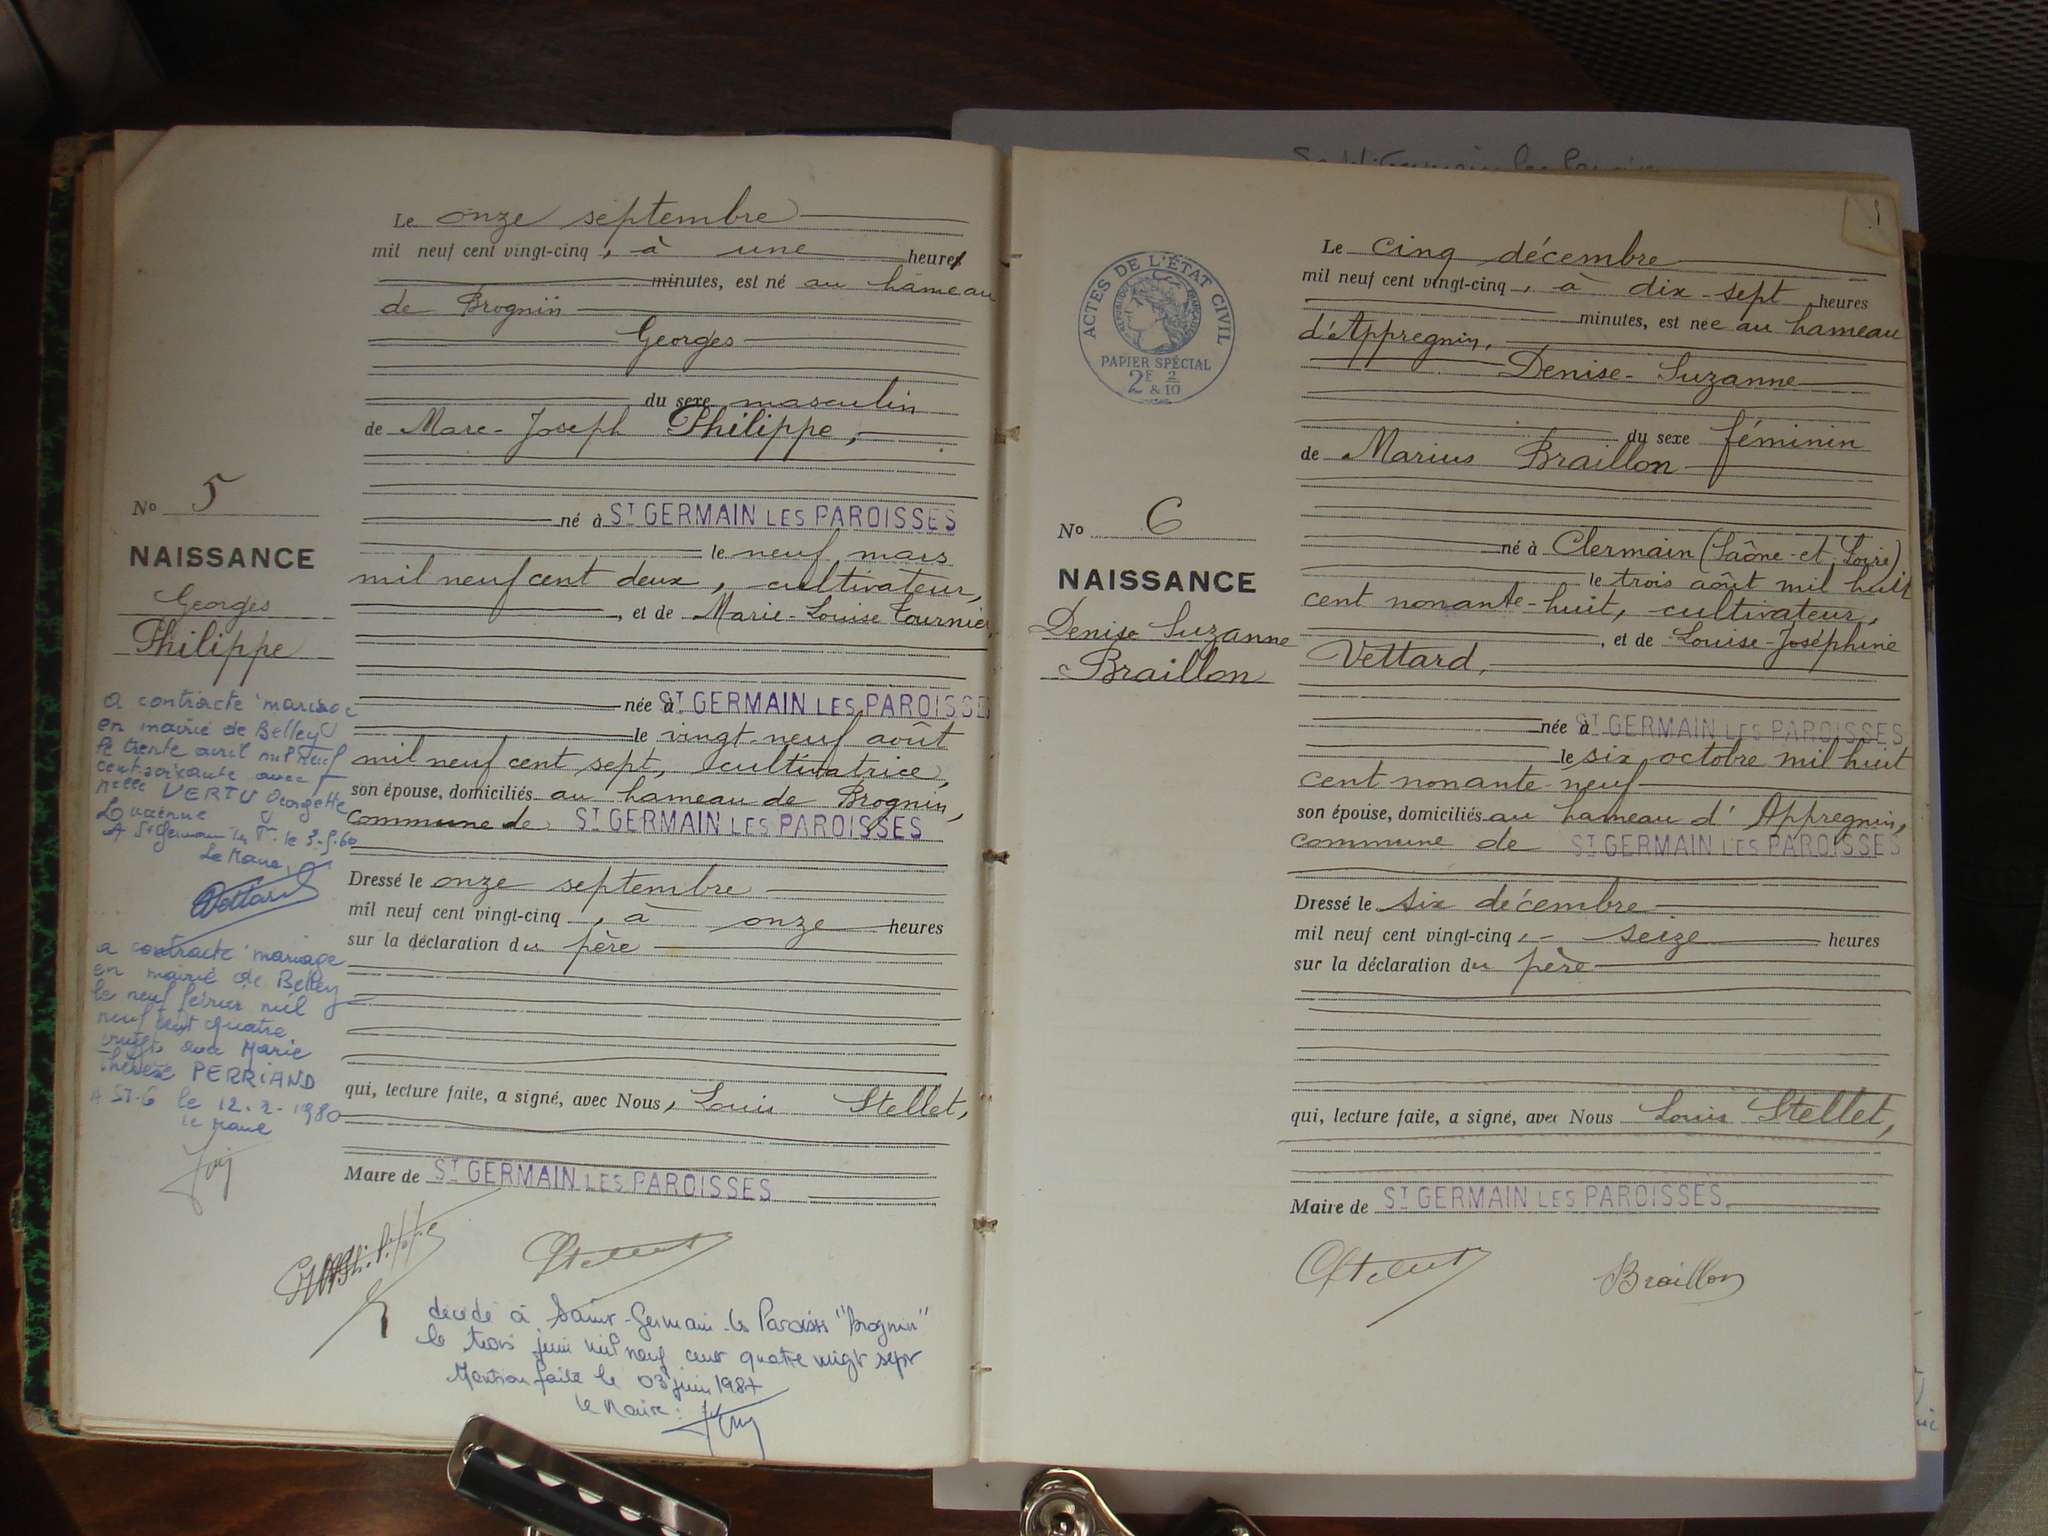 Le onze septembre
mil neuf cent vingt-cinq, à une heure
minutes, est né au hameau
de Brognin
Georges
du sexe masculin
de Marc-Joseph Philippe,
né à ST GERMAIN LES PAROISSES
le neuf mars
mil neuf cent deux, cultivateur,
, et de Marie-Louise Tournier,
née à ST GERMAIN LES PAROISSES
le vingt-neuf août
mil neuf cent sept, cultivatrice,
son épouse, domiciliés au hameau de Brognin,
commune de ST GERMAIN LES PAROISSES
Dressé le onze septembre
mil neuf cent vingt-cinq, à onze heures
sur la déclaration du père
qui, lecture faite, a signé, avec Nous, Louis Stellet,
Maire de ST GERMAIN LES PAROISSES
No 5
NAISSANCE
Georges
Philippe
a contracté mariage
en mairie de Belley
le trente avril mil neuf
cent soixante avec
Melle VERTU Georgette
A St Germain les P. le 3-5-60
Le Maire,
a contracté mariage
en mairie de Belley
le neuf février mil
neuf cent quatre
vingts avec Marie
Thérèse PERRIAND
A ST-G le 12-2-1980
le Maire
Stellet
décédé à Saint-Germain-les Paroisses "Brognin"
le trois juin mil neuf cent quatre vingt sept
Mention faite le 03 juin 1987
le Maire:
ACTES DE L'ÉTAT CIVIL
RÉPUBLIQUE FRANÇAISE
PAPIER SPÉCIAL
2F & 2/10
Le cinq décembre
mil neuf cent vingt-cinq, à dix-sept heures
minutes, est née au hameau
d'Appregnin,
Denise-Suzanne
du sexe féminin
de Marius Braillon
né à Clermain (Saône-et-Loire)
le trois août mil huit
cent nonante-huit, cultivateur,
, et de Louise-Joséphine
Vettard,
née à ST GERMAIN LES PAROISSES
le six octobre mil huit
cent nonante-neuf
son épouse, domiciliés au hameau d'Appregnin,
commune de ST GERMAIN LES PAROISSES
Dressé le six décembre
mil neuf cent vingt-cinq, - seize heures
sur la déclaration du père
qui, lecture faite, a signé, avec Nous Louis Stellet,
Maire de ST GERMAIN LES PAROISSES
No 6
NAISSANCE
Denise Suzanne
Braillon
Stellet
Braillon